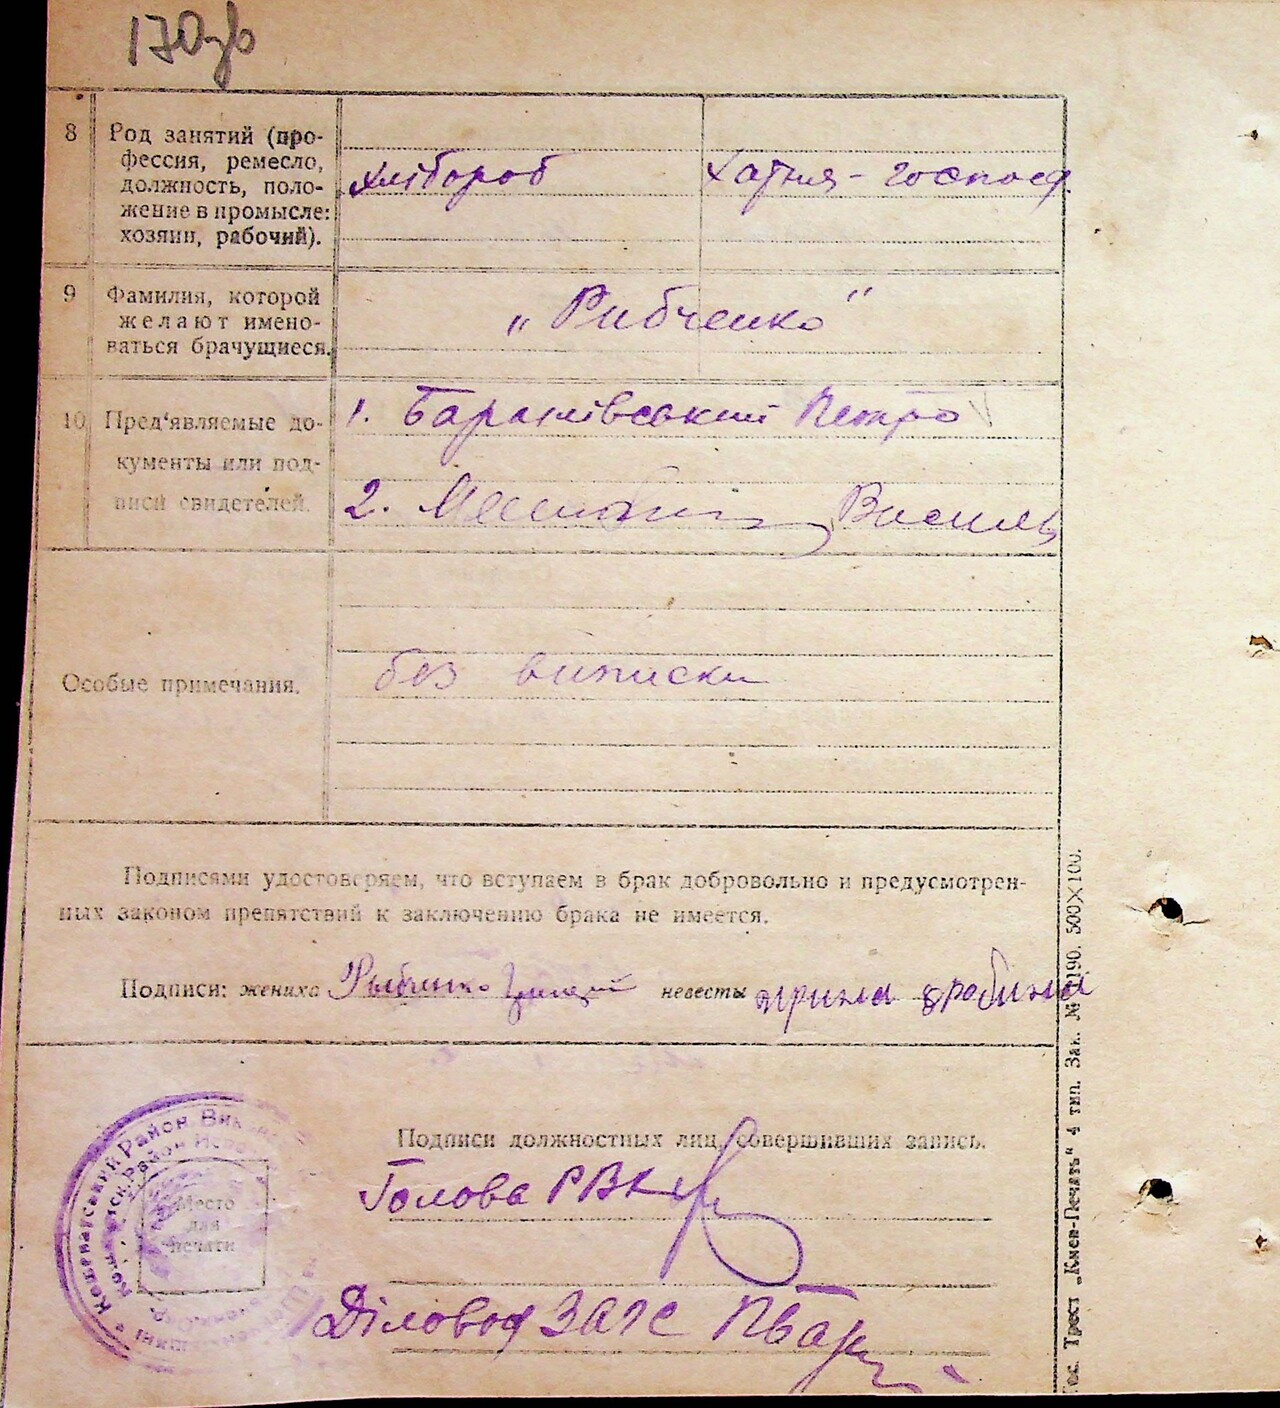 170зв
8 Род занятий (про-
фессия, ремесло,
должность, поло-
жение в промысле:
хозяин, рабочий).
хлібороб Хатня - господ.
9 Фамилия, которой
желают имено-
ваться брачущиеся.
„Рибченко“
10 Пред‘являемые до-
кументы или под-
писи свидетелей.
1. Баранівський Петро
2. Василь
Особые примечания.
без виписки
Подписями удостоверяем, что вступаем в брак добровольно и предусмотрен-
ных законом препятствий к заключению брака не имеется.
Подписи: жениха Рыбченко Грицкий невесты
Подписи должностных лиц, совершивших запись.
Голова РВК
Діловод ЗАГС
Место
для
печати
Район Викон
Трест „Киев-Печать“ 4 тип. Зак. № 1190. 500×100.